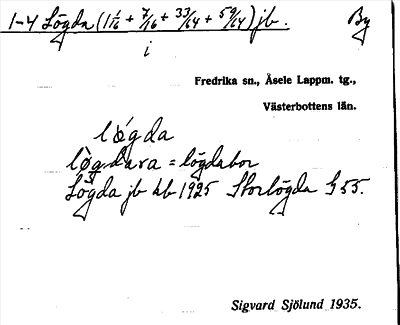 1-4 Lögda (1 1/16 + 7/16 + 33/64 + 59/64) jb. By
i
Fredrika sn., Åsele Lappm. tg.,
Västerbottens län.
lógda
lògdara = lögdabor
Lögda jb kb 1925 Storlögda G 55.
Sigvard Sjölund 1935.